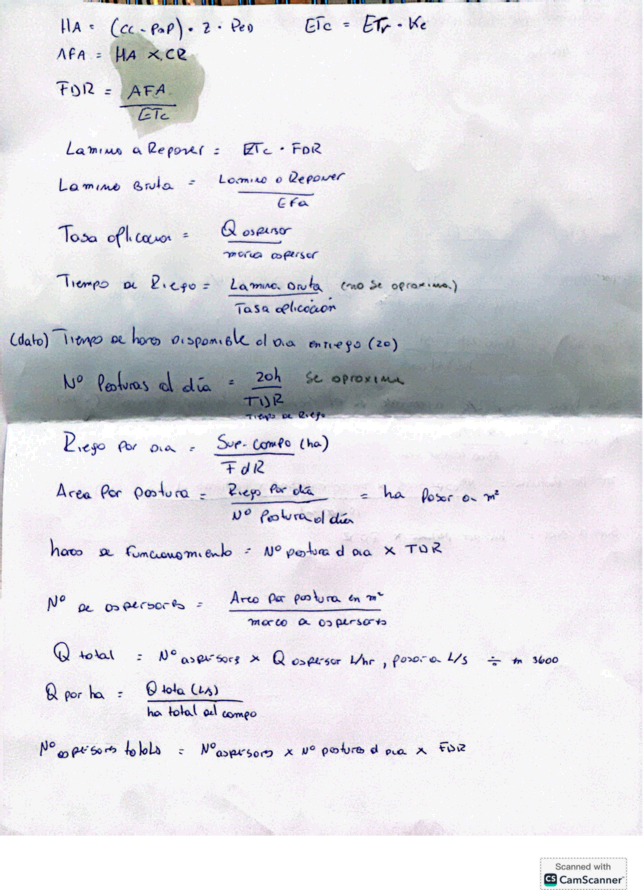 HA = (CC - PMP) · Z · Pea     ETc = ETr · Kc
AFA = HA x CR
FDR = AFA / ETc
Lamina a Reponer = ETc · FDR
Lamina Bruta = Lamina a Reponer / Efa
Tasa aplicacion = Q aspersor / marco aspersor
Tiempo de Riego = Lamina Bruta / Tasa aplicación (no se aproxima)
(dato) Tiempo de horas disponible al dia en riego (20)
Nº Posturas al día = 20h / TDR se aproxima
Tiempo de Riego
Riego por dia = Sup. campo (ha) / FdR
Area por postura = Riego por día / Nº Postura al dia = ha pasar a m²
horas de funcionamiento = Nº postura al dia x TDR
Nº de aspersores = Area por postura en m² / marco a aspersores
Q total = Nº aspersors x Q aspersor L/hr, pasar a L/s ÷ 3600
Q por ha = Q total (L/s) / ha total del campo
Nº aspersores totales = Nº aspersores x Nº posturas al dia x FDR
Scanned with
CS CamScanner